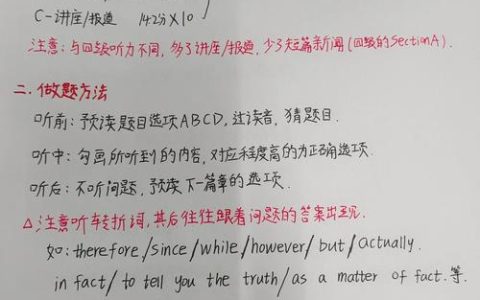 C-讲座/报道 142分×10
注意:与四级听力不同,多了讲座/报道,少了短篇新闻(四级的SectionA).
二.做题方法
听前:预读题目选项ABCD,过读音,猜题目.
听中:勾画所听到的内容,对应程度高的为正确选项.
听后:不听问题,预读下一篇章的选项.
△注意听转折词,其后往往跟着问题的答案出现.
如:therefore/since/while/however/but/actually.
in fact/to tell you the truth/as a matter of fact.等.